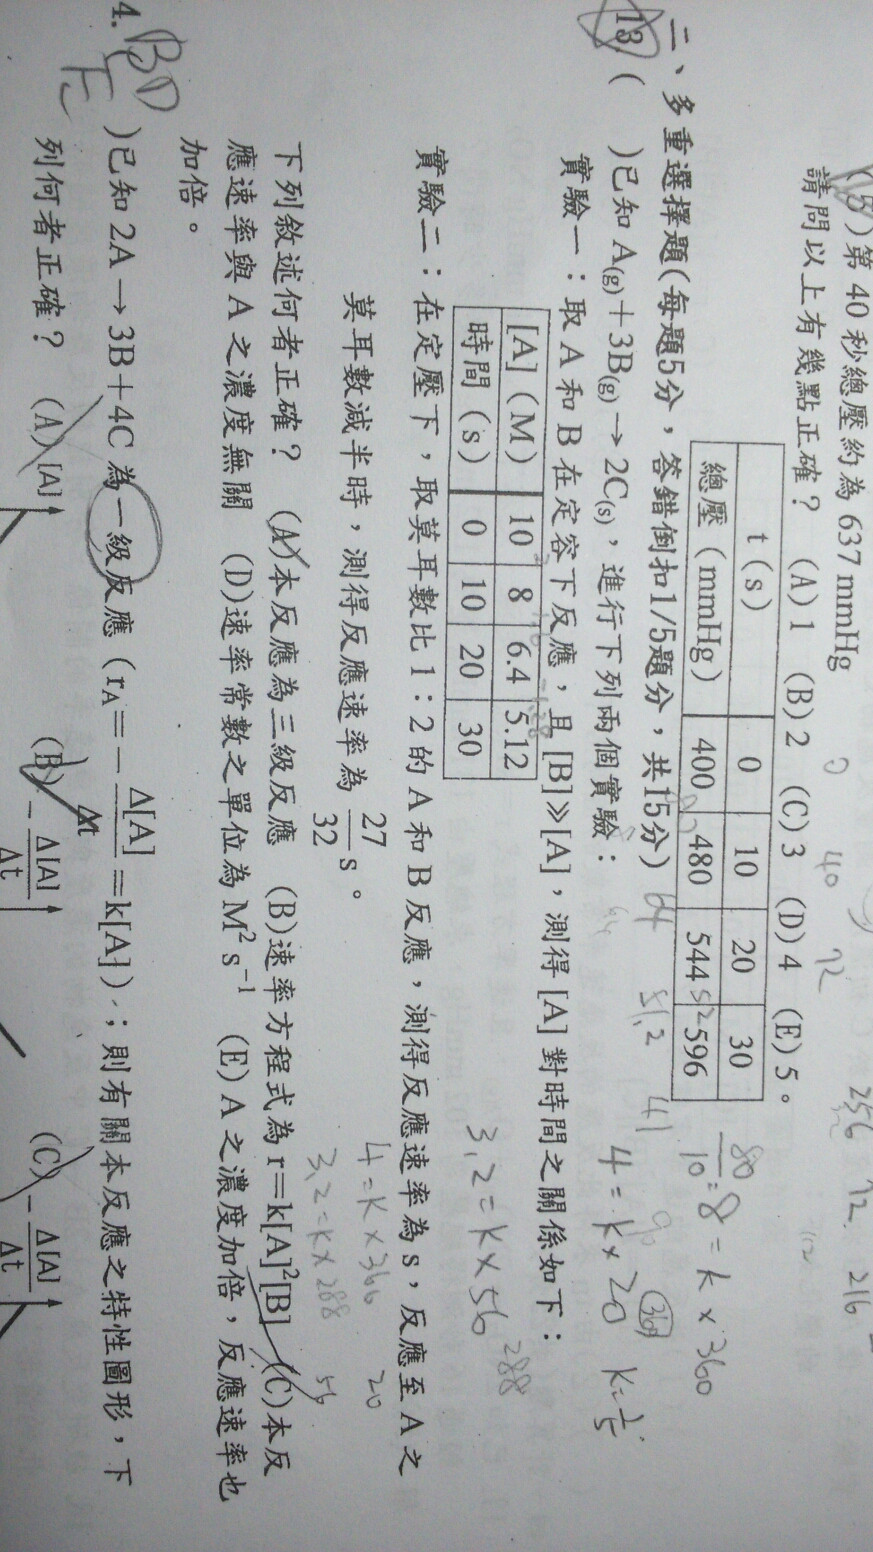 (B)第40秒總壓約為637 mmHg
請問以上有幾點正確？ (A)1 (B)2 (C)3 (D)4 (E)5。
t(s) 0 10 20 30
總壓(mmHg) 400 480 544 596
52
二、多重選擇題(每題5分，答錯倒扣1/5題分，共15分)
13 ( )已知A(g)+3B(g)→2C(s)，進行下列兩個實驗：
實驗一：取A和B在定容下反應，且[B]≫[A]，測得[A]對時間之關係如下：
[A](M) 10 8 6.4 5.12
時間(s) 0 10 20 30
實驗二：在定壓下，取莫耳數比1：2的A和B反應，測得反應速率為s，反應至A之
莫耳數減半時，測得反應速率為27/32 s。
下列敘述何者正確？ (A)本反應為三級反應 (B)速率方程式為r=k[A]²[B] (C)本反
應速率與A之濃度無關 (D)速率常數之單位為M² s⁻¹ (E)A之濃度加倍，反應速率也
加倍。
BD
E
4. ( )已知2A→3B+4C為一級反應(rA=-Δ[A]/Δt=k[A])；則有關本反應之特性圖形，下
列何者正確？ (A) [A] (B) -Δ[A]/Δt (C) -Δ[A]/Δt
0 40 72
256 12. 216
64 51.2 41
80/10=8=k×360
4=k×20 k=1/5
360
3.2=k×56
288
4=k×360 20
3.2=k×288 56